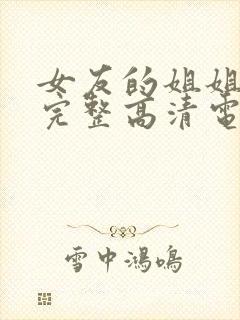 女友的姐姐
完整高清電
雪中鴻鳴